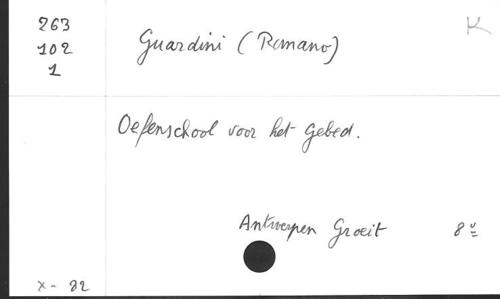 263
102
1
Guardini (Romano)
K
Oefenschool voor het Gebed.
Antwerpen Groeit 8°
x - 82